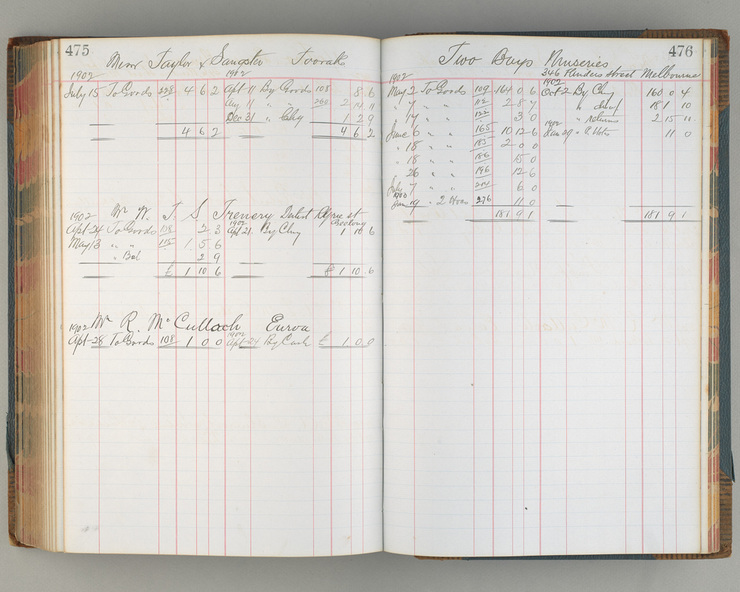 475
Messrs Taylor & Sangster Toorak
1902 1902
July 15 To Goods 228 4 6 2 Apl 11 By Goods 108 8 6
Aug 11 " 260 2 14 11
Dec 31 " Chq 1 2 9
4 6 2 4 6 2
1902 Mr W. T. S. Trenery Dentist
Apl 24 To Goods 108 2 3 1902 Apl 21 By Chq 1 10 6
May 13 " " 115 1 5 6
" Bal 2 9
£ 1 10 6 £ 1 10 6
1902 Mr R. McCullach Euroa
Apl 28 To Goods 108 1 0 0 1902 Apl 24 By Cash £ 1 0 0
476
Two Bays Nurseries
1902 346 Flinders Street Melbourne
May 2 To Goods 109 164 0 6 1902 Oct 2 By Chq 160 0 4
" 7 " " 112 2 8 7 " 18 1 10
" 14 " " 122 3 0 " returns 2 15 11
June 6 " " 165 10 12 6 1902 Jan 29 " 11 0
" 18 " " 185 2 0 0
" 18 " " 186 15 0
" 26 " " 196 12 6
July 7 " " 6 0
Jan 19 " 276 11 0
181 9 1 181 9 1